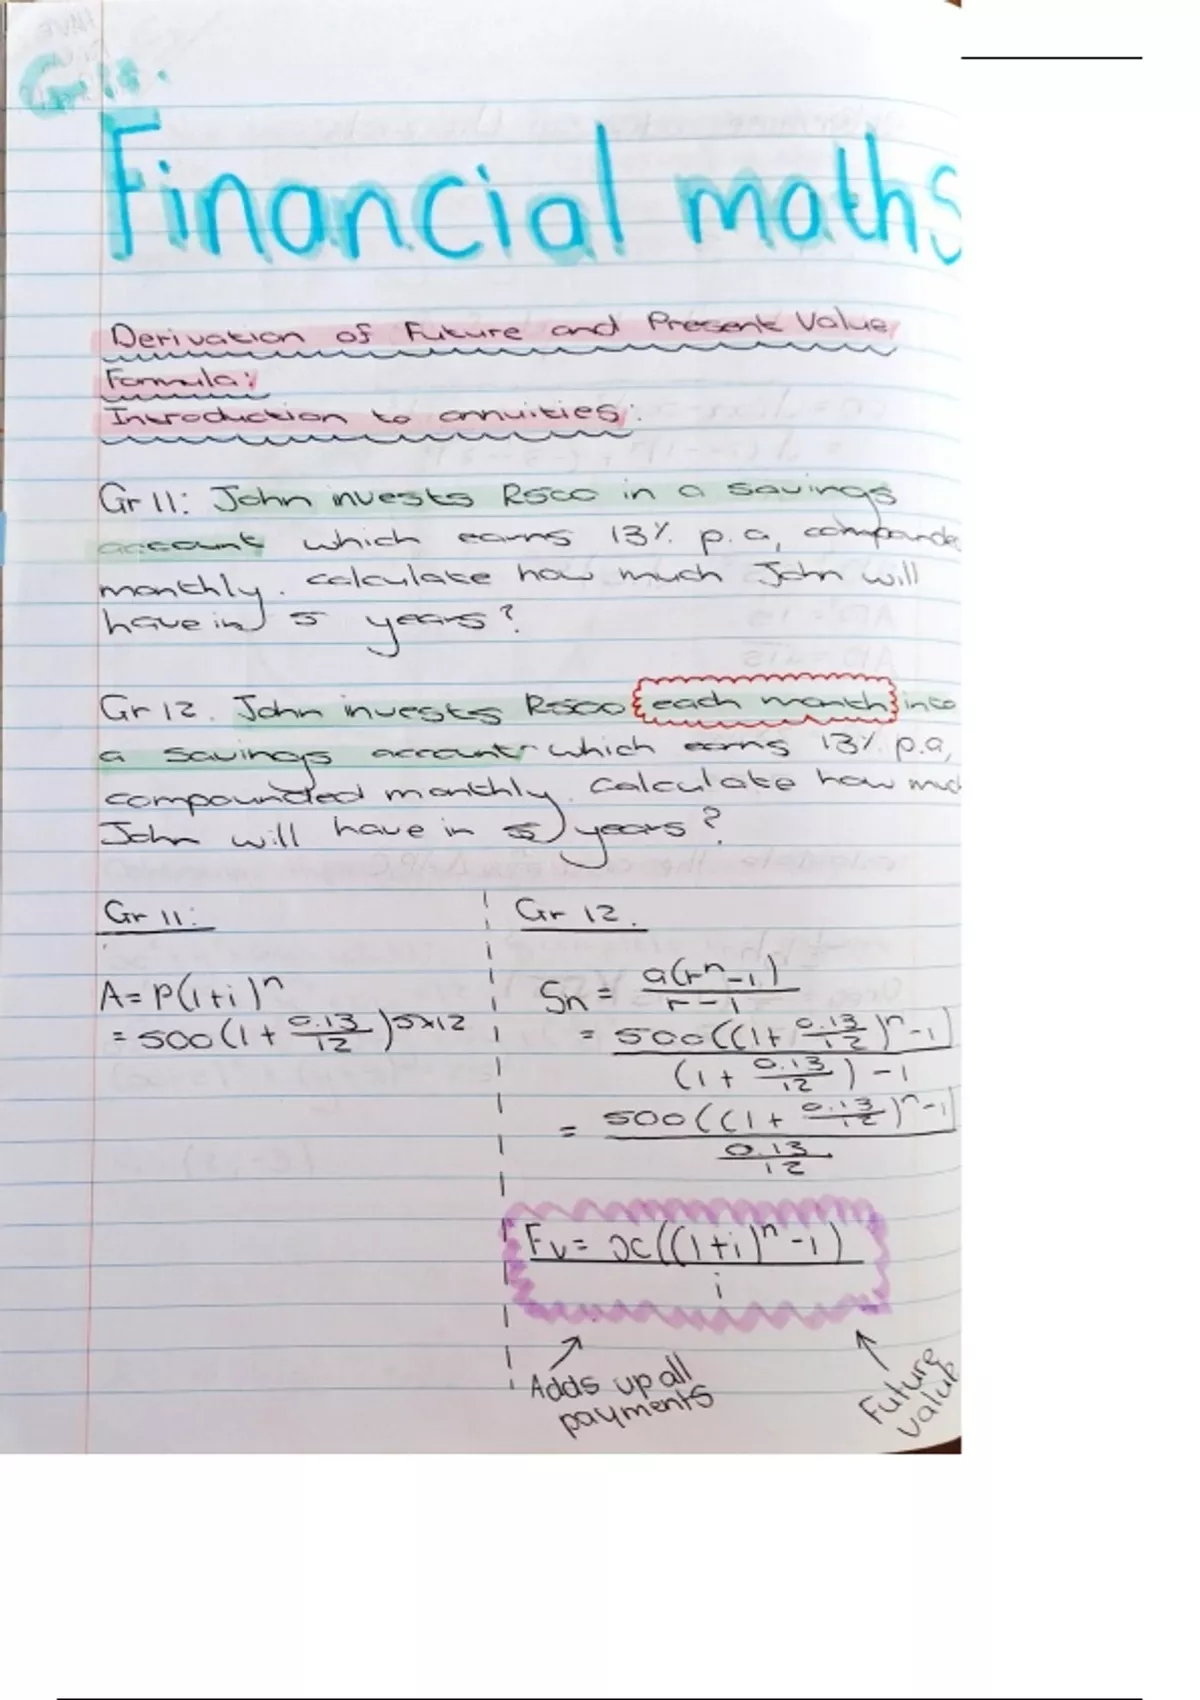 Financial maths
Derivation of Future and Present Value
Formula:
Introduction to annuities:
Gr 11: John invests R500 in a savings
account which earns 13% p.a, compounde
monthly. calculate how much John will
have in 5 years?
Gr 12. John invests R500 each month into
a savings account which earns 13% p.a,
compounded monthly. Calculate how muc
John will have in 5 years?
Gr 11:
A = P(1+i)^n
= 500(1 + 0.13/12)^5x12
Gr 12.
Sn = a(r^n - 1)/r - 1
= 500((1 + 0.13/12)^n - 1]/(1 + 0.13/12) - 1
= 500((1 + 0.13/12)^n - 1]/0.13/12
Fv = x((1+i)^n - 1)/i
Adds up all
payments
Future
value